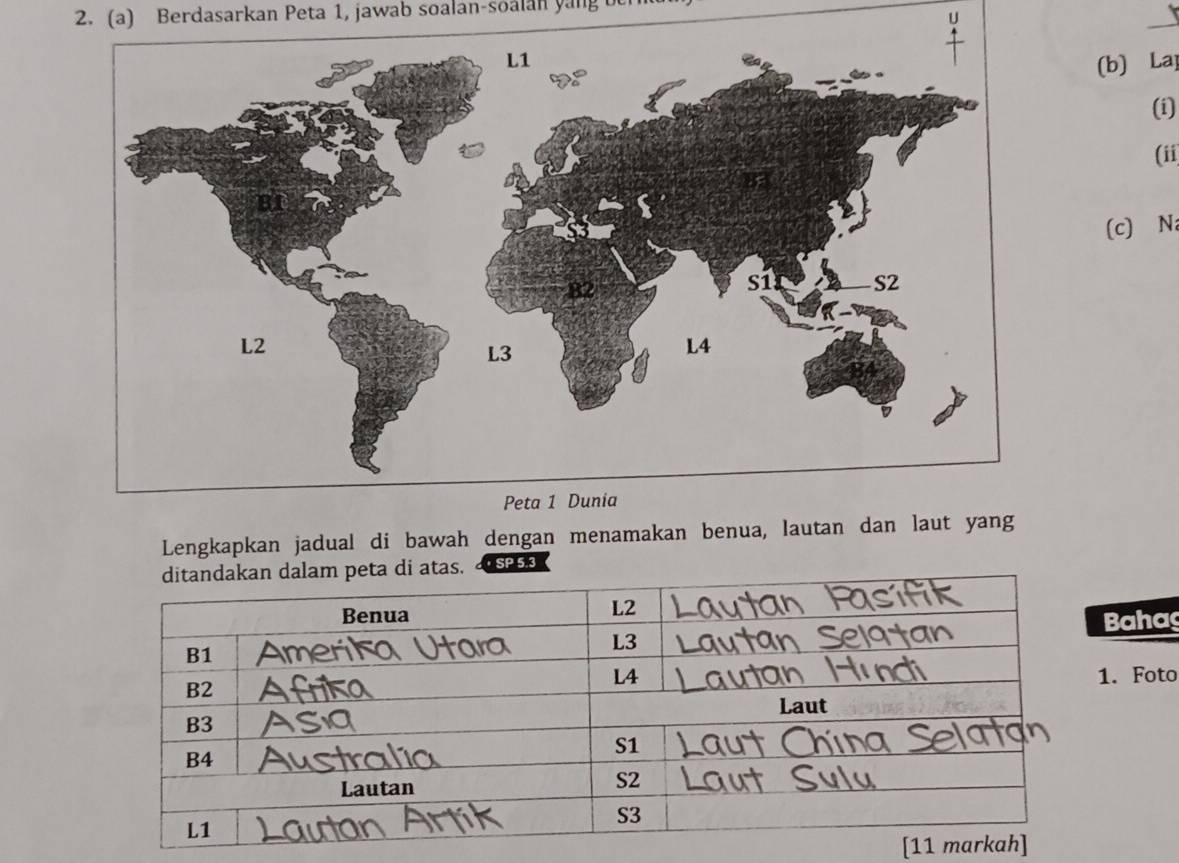 2. (a) Berdasarkan Peta 1, jawab soalan-soalan yang
U
L1
B1
B3
S3
B2
S1
S2
L2
L3
L4
B4
Peta 1 Dunia
Lengkapkan jadual di bawah dengan menamakan benua, lautan dan laut yang
ditandakan dalam peta di atas. SP 5.3
Benua
B1 Amerika Utara
B2 Afrika
B3 Asia
B4 Australia
Lautan
L1 Lautan Artik
L2 Lautan Pasifik
L3 Lautan Selatan
L4 Lautan Hindi
Laut
S1 Laut China Selatan
S2 Laut Sulu
S3
[11 markah]
(b)
(i)
(ii
(c)
1. Foto